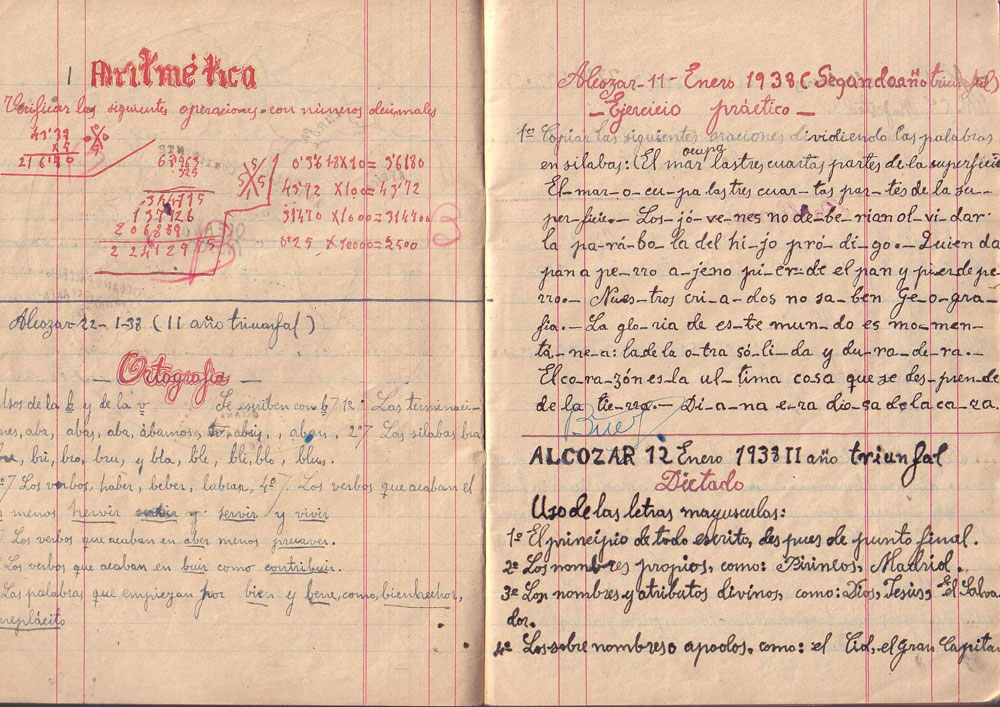 1 Aritmética
Verificar las siguientes operaciones con números decimales
43'39
x5
21630
68963
325
344115
137926
206889
22412975
0'3618 X 10 = 3'6180
43'72 X 100 = 43'72
31'470 X 1000 = 314700
0'25 X 10000 = 2500
B
Alcozar-22-1-38 ( II año triunfal )
- Ortografía -
Usos de la b y de la v Se escriben con b 1º Las terminacio-
nes, aba, abas, aba, ábamos, abais, aban. 2º Las sílabas bra
bri, bro, bru, y bla, ble, bli, blo, blu.
Los verbos, haber, beber, labrar, 4º Los verbos que acaban el
menos hervir y servir y vivir
Los verbos que acaban en aber menos precaver.
Los verbos que acaban en buir como contribuir.
Las palabras que empiezan por bien y bene, como, bienhechor,
neplácito
Alcozar-11-Enero 1938 (Segundo año triunfal)
- Ejercicio práctico -
1º Copiar las siguientes oraciones dividiendo las palabras
en silabas: (El mar ocupa las tres, cuartas partes de la superficie
El-mar-o-cu-pa las tres cuar-tas par-tes de la su-
per-ficie.- Los-jó-ve-nes no de-be-rian ol-vi-dar
la pa-rá-bo-la del hi-jo pró-di-go.- Quien da
pan a pe-rro a-jeno pi-er-de el pan y pier-de pe-
rro.- Nues-tros cri-a-dos no sa-ben Ge-o-gra-
fía.- La glo-ria de es-te mun-do es mo-men-
tá-ne-a: la de la o-tra só-li-da y du-ra-de-ra.-
El co-ra-zón es-la ul-tima cosa que se des-pren-de
de la tie-rra.- Di-a-na e-ra dio-sa de la ca-za.
Buez
ALCOZAR 12 Enero 1938 II año triunfal
Dictado
Uso de las letras mayusculas:
1º El principio de todo escrito, des pues de punto final.
2º Los nombres propios, como: Pirineos, Madrid.
3º Los nombres y atributos divinos, como: Dios, Jesus, El Salva-
dor.
4º Los sobre nombres o apodos, como: el Cid, el gran Capitan